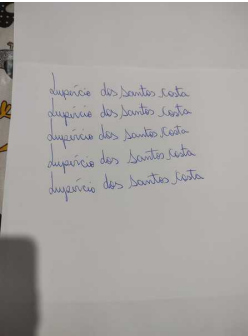 Lupércio dos Santos Costa
Lupércio dos Santos Costa
Lupércio dos Santos Costa
Lupércio dos Santos Costa
Lupércio dos Santos Costa